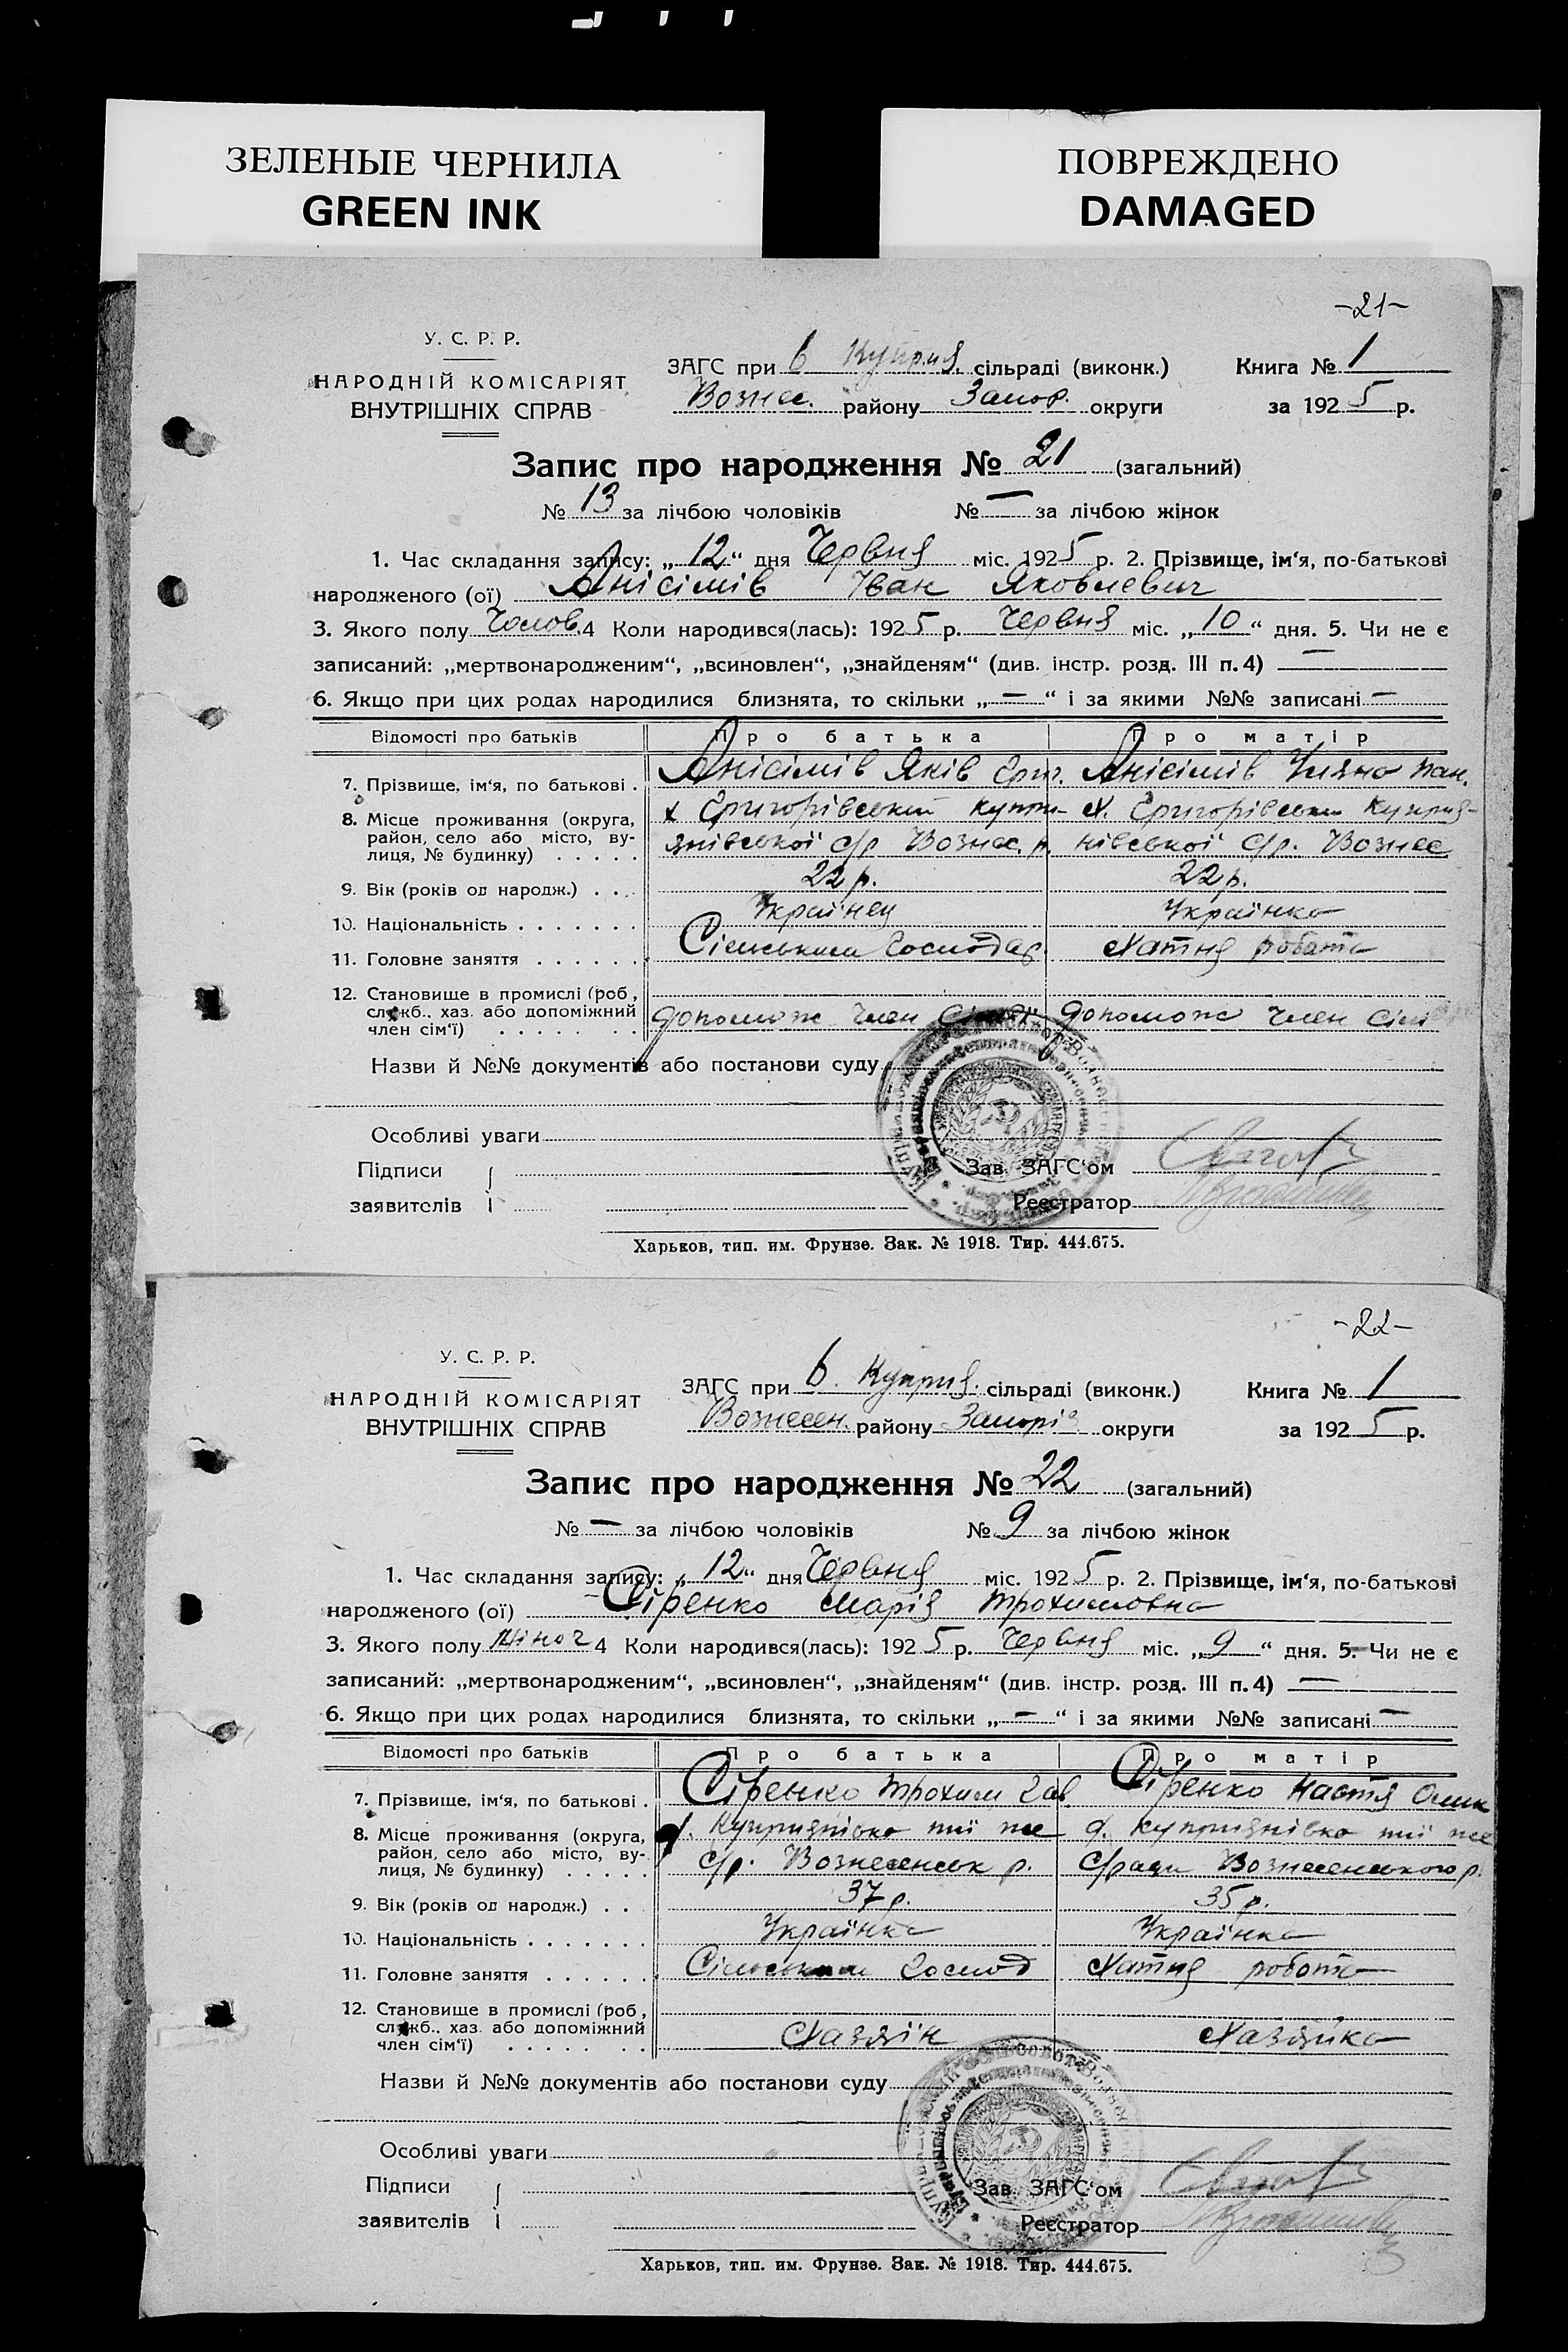 ЗЕЛЕНЫЕ ЧЕРНИЛА
GREEN INK
ПОВРЕЖДЕНО
DAMAGED
-21-
У. С. Р. Р.
НАРОДНІЙ КОМІСАРІЯТ
ВНУТРІШНІХ СПРАВ
ЗАГС при Куприя. сільраді (виконк.) Книга № 1
Вознес. району Запор. округи за 1925 р.
Запис про народження № 21 (загальний)
№ 13 за лічбою чоловіків № — за лічбою жінок
1. Час складання запису: „12“ дня Червня міс. 1925 р. 2. Прізвище, ім‘я, по-батькові
народженого (ої) Анісімів Іван Яковлевич
3. Якого полу Чолов. 4 Коли народився(лась): 1925 р. Червня міс. „10“ дня. 5. Чи не є
записаний: „мертвонародженим“, „всиновлен“, „знайденям“ (див. інстр. розд. III п. 4) —
6. Якщо при цих родах народилися близнята, то скільки „—“ і за якими №№ записані —
Відомості про батьків Про батька Про матір
7. Прізвище, ім‘я, по батькові . Анісімів Яків Григ. Анісімів Уляна Пан.
8. Місце проживання (округа, район, село або місто, вулиця, № будинку) . . . . . х Григорівський Купри-янівської с/р Вознес. р. х. Григорівськи Куприя-нівської с/р. Вознес
9. Вік (років од народж.) . . . 22 р. 22 р.
10. Національність . . . . . . . Українец Українка
11. Головне заняття . . . . . . Сільським Господар. Хатня робота
12. Становище в промислі (роб., служб.. хаз. або допоміжний член сім‘ї) . . . . . . . Допомож член сім'ї Допомож член сім
Назви й №№ документів або постанови суду
Особливі уваги
Підписи Зав. ЗАГС‘ом
заявителів Реєстратор
Харьков, тип. им. Фрунзе. Зак. № 1918. Тир. 444.675.
-22-
У. С. Р. Р.
НАРОДНІЙ КОМІСАРІЯТ
ВНУТРІШНІХ СПРАВ
ЗАГС при Куприя. сільраді (виконк.) Книга № 1
Вознесен. району Запоріз округи за 1925 р.
Запис про народження № 22 (загальний)
№ — за лічбою чоловіків № 9 за лічбою жінок
1. Час складання запису: „12“ дня Червня міс. 1925 р. 2. Прізвище, ім‘я, по-батькові
народженого (ої) Сіренко Марія Трохимовна
3. Якого полу жіноч 4 Коли народився(лась): 1925 р. Червня міс. „9“ дня. 5. Чи не є
записаний: „мертвонародженим“, „всиновлен“, „знайденям“ (див. інстр. розд. III п. 4) —
6. Якщо при цих родах народилися близнята, то скільки „—“ і за якими №№ записані —
Відомості про батьків Про батька Про матір
7. Прізвище, ім‘я, по батькові . Сіренко Трохим Сіренко Настя
8. Місце проживання (округа, район, село або місто, вулиця, № будинку) . . . . Куприянівка тії же с/р. Вознесенськ р. Куприянівка тії же с/ради Вознесенського р.
9. Вік (років од народж.) . . . 37 р. 35 р.
10. Національність . . . . . . . Українка Українка
11. Головне заняття . . . . . . Сільським Господ Хатня робота
12. Становище в промислі (роб., служб.. хаз. або допоміжний член сім‘ї) . . . . . . . Хазяїн Хазяйка
Назви й №№ документів або постанови суду
Особливі уваги
Підписи Зав. ЗАГС‘ом
заявителів Реєстратор
Харьков, тип. им. Фрунзе. Зак. № 1918. Тир. 444.675.